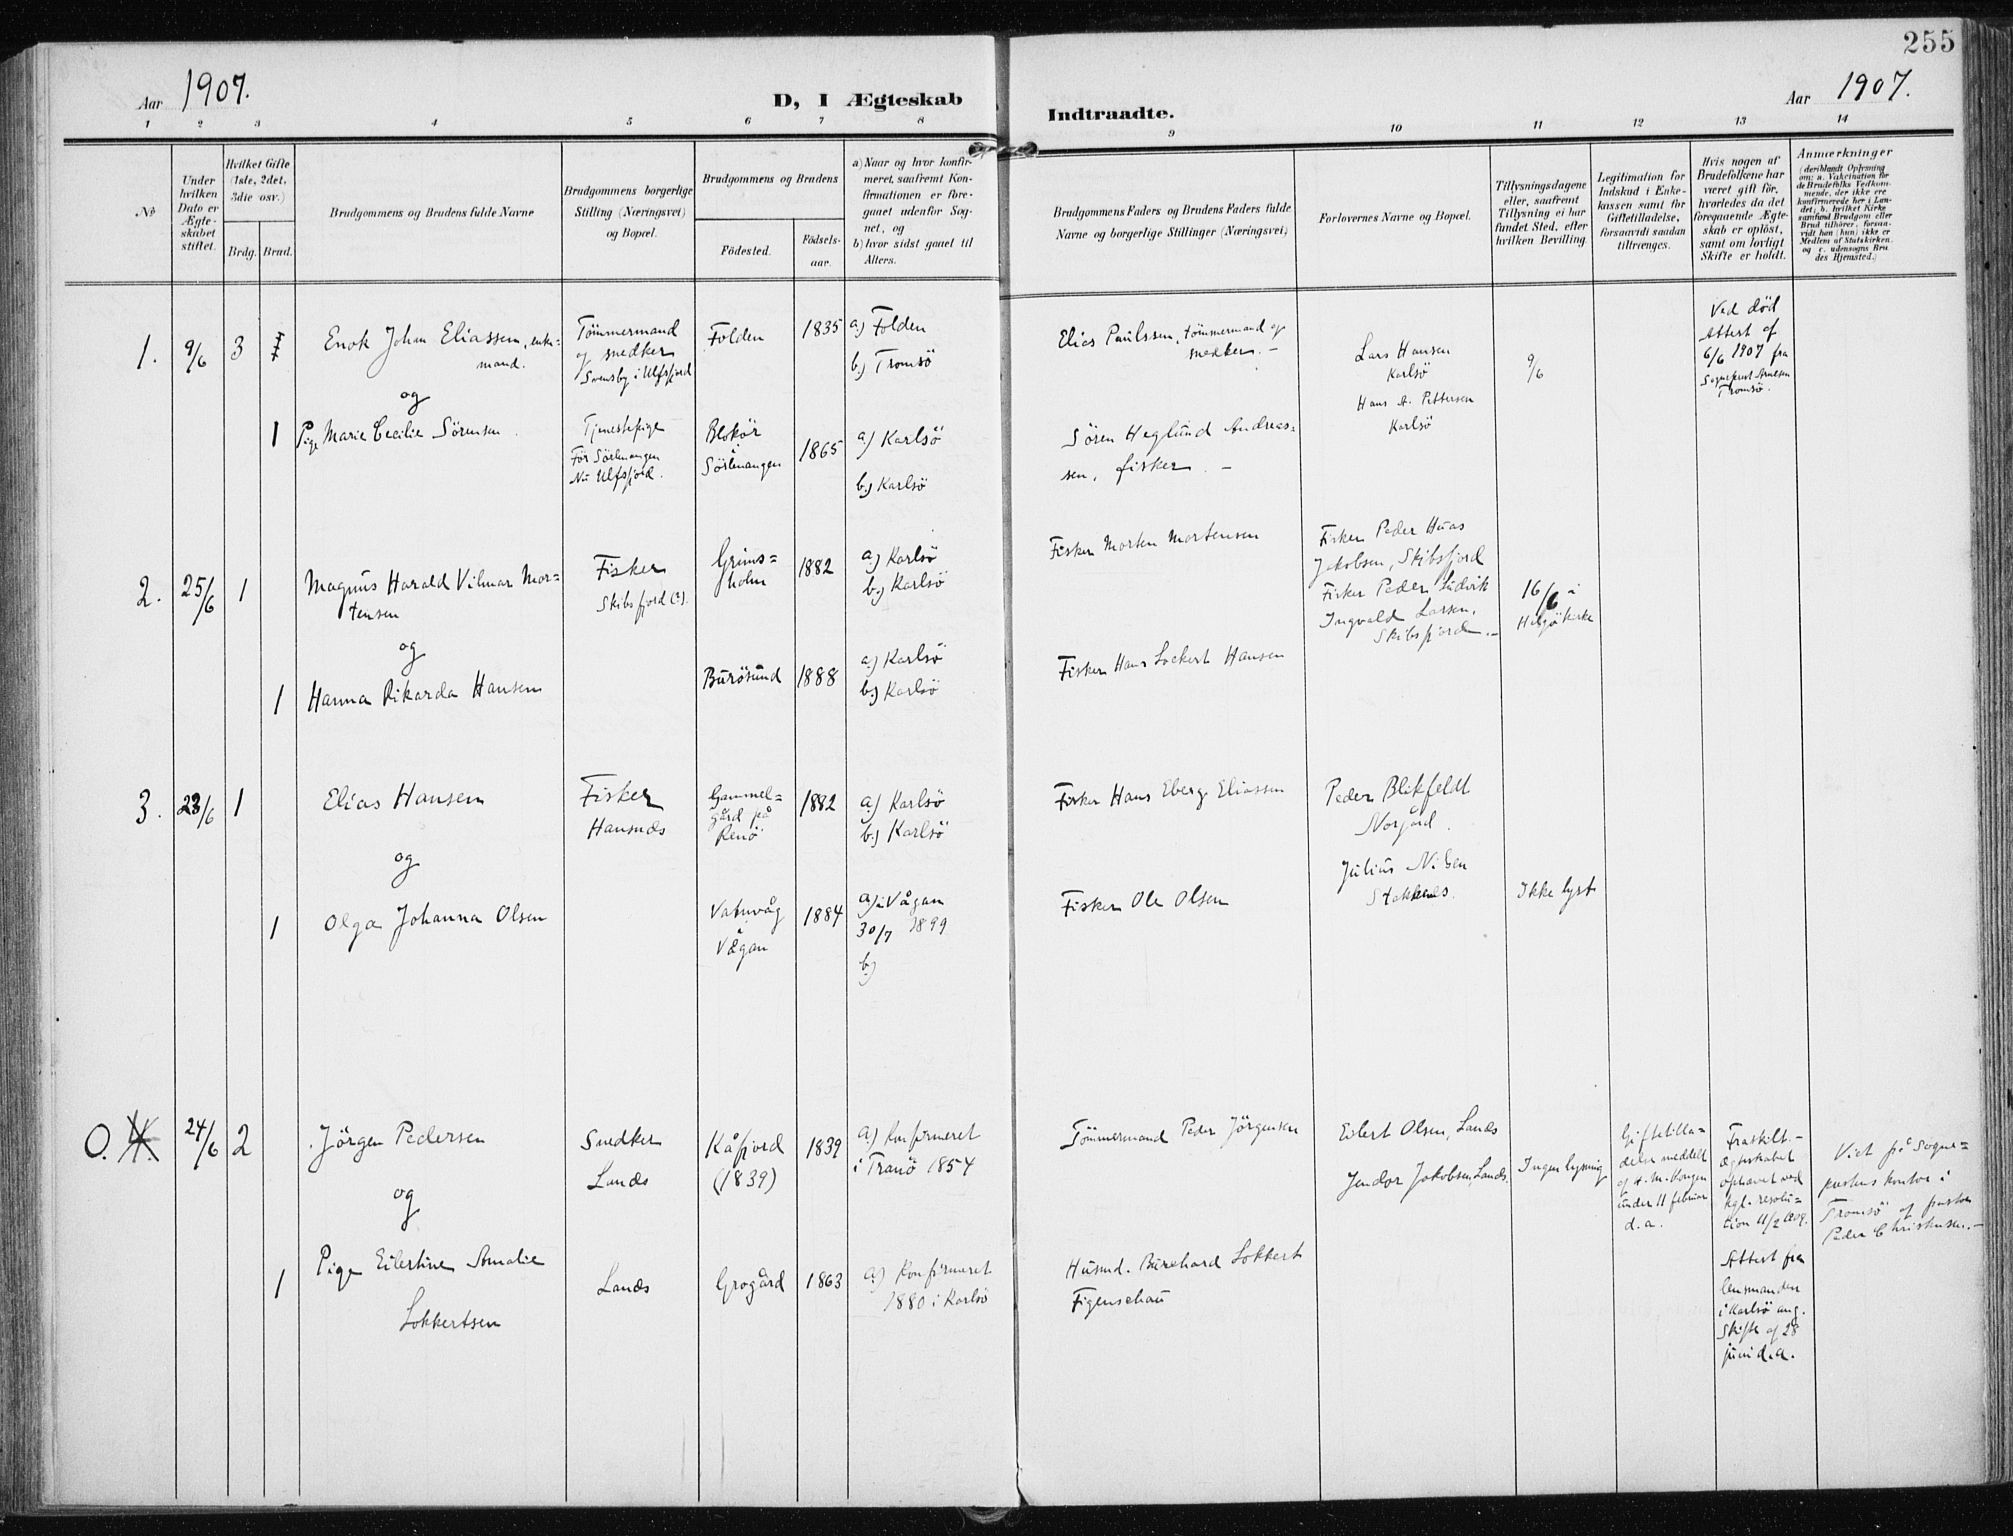 255
Aar 1907.
D, I Ægteskab
Indtraadte.
Aar 1907.
1 2 3 4 5 6 7 8 9 10 11 12 13 14
No
Under
hvilken
Dato er
Ægte-
skabet
stiftet.
Hvilket Gifte
(1ste, 2det,
3die osv.)
Brdg. Brud.
Brudgommens og Brudens fulde Navne
Brudgommens borgerlige
Stilling (Næringsvei)
og Bopæl.
Brudgommens og Brudens
Födested.
Födsels-
aar.
a) Naar og hvor konfir-
meret, saafremt Kon-
firmationen er fore-
gaaet udenfor Sog-
net, og
b) hvor sidst gaaet til
Alters.
Brudgommens Faders og Brudens Faders fulde
Navne og borgerlige Stillinger (Næringsvei)
Forlovernes Navne og Bopæl.
Tillysningsdagene
eller, saafremt
Tillysning ei har
fundet Sted, efter
hvilken Bevilling.
Legitimation for
Indskud i Enke-
kassen samt for
Giftetilladelse,
forsaavidt saadan
tiltrænges.
Hvis nogen af
Brudefolkene har
været gift för,
hvorledes da det
foregaaende Ægte-
skab er oplöst,
samt om lovligt
Skifte er holdt.
Anmærkninger
(deriblandt Oplysning
om: a. Vakcination for
de Brudefolks Vedkom-
mende, der ikke ere
konfirmerede her i Lan-
det, b. hvilket Kirke
samfund Brudgom eller
Brud tilhörer, forsaa-
vidt han (hun) ikke er
Medlem af Statskirken,
og c. udensogns Bru
des Hjemsted.)
1. 9/6 3
Enok Johan Eliassen, enke-
mand.
Tömmermand
og snedker
Svensby i Ulfsfjord
Folden
1835
a) Folden
b.) Tromsö
Elias Paulssen, tömmermand og
snedker. –
Lars Hansen
Karlsö
Hans A. Pettersen
Karlsö
9/6
Ved död
Attest af
6/6 1907 fra
Sogneprest Arnesen
Tromsö.
og
1 Pige Marie Cecilie Sörensen
Tjenestepige
För Sörlenangen
Nu Ulfsfjord.
Sörlenangen
1865
a.) Karlsö
b.) Karlsö
Sören Heglund Andreas-
sen, fisker. –
2. 25/6 1
Magnus Harald Vilmar Mor-
tensen
Fisker
Skibsfjord (?).
Grims-
holm
1882
a.) Karlsö
b.) Karlsö
Fisker Morten Mortensen
Fisker Peder
Jakobsen, Skibsfjord
Fisker Peder Ludvik
Ingvald Larsen,
Skibsfjorden. –
16/6 i
Helgökirke
og
1 Hanna Rikarda Hansen
Burösund
1888
a.) Karlsö
b.) Karlsö
Fisker Hans Lockert Hansen
3. 23/6 1
Elias Hansen
Fisker
Hansnæs
Gammel-
gård på
Renö
1882
a) Karlsö
b.) Karlsö
Fisker Hans Eberg Eliassen
Peder Blikfeldt
Norgård.
Julius Nilsen
Stakkenes.
Ikke lyst
og
1 Olga Johanna Olsen
Vatnvåg
Vågan
1884
a) i Vågan
30/7 1899
b.)
Fisker Ole Olsen
O. 4. 24/6 2
Jörgen Pedersen
Snedker
Lanæs
Kåfjord
(1839)
1839
a.) Konfirmeret
i Tranö 1854
Tömmermand Peder Jörgensen
Eilert Olsen, Lanæs
Jendor Jakobsen, Lanæs.
Ingen lysning
Giftetilla-
delse meddelt
af H. M. Kongen
under 11 februar
d. a.
Fraskilt. –
Ægteskabet
ophævet ved
kgl. resolu-
tion 11/2 1907.
Attest fra
lensmanden
i Karlsö ang.
Skifte af 28
juni d. a.
Viet på sogne-
prestens kontor i
Tromsö af pastor
Peder Christensen. –
og
1 Pige Eilertine Amalie
Lokkertsen
Lanæs
Grogård
1863
a.) Konfirmeret
1880 i Karlsö
Husmd. Burchard Lokkert
Figenschau